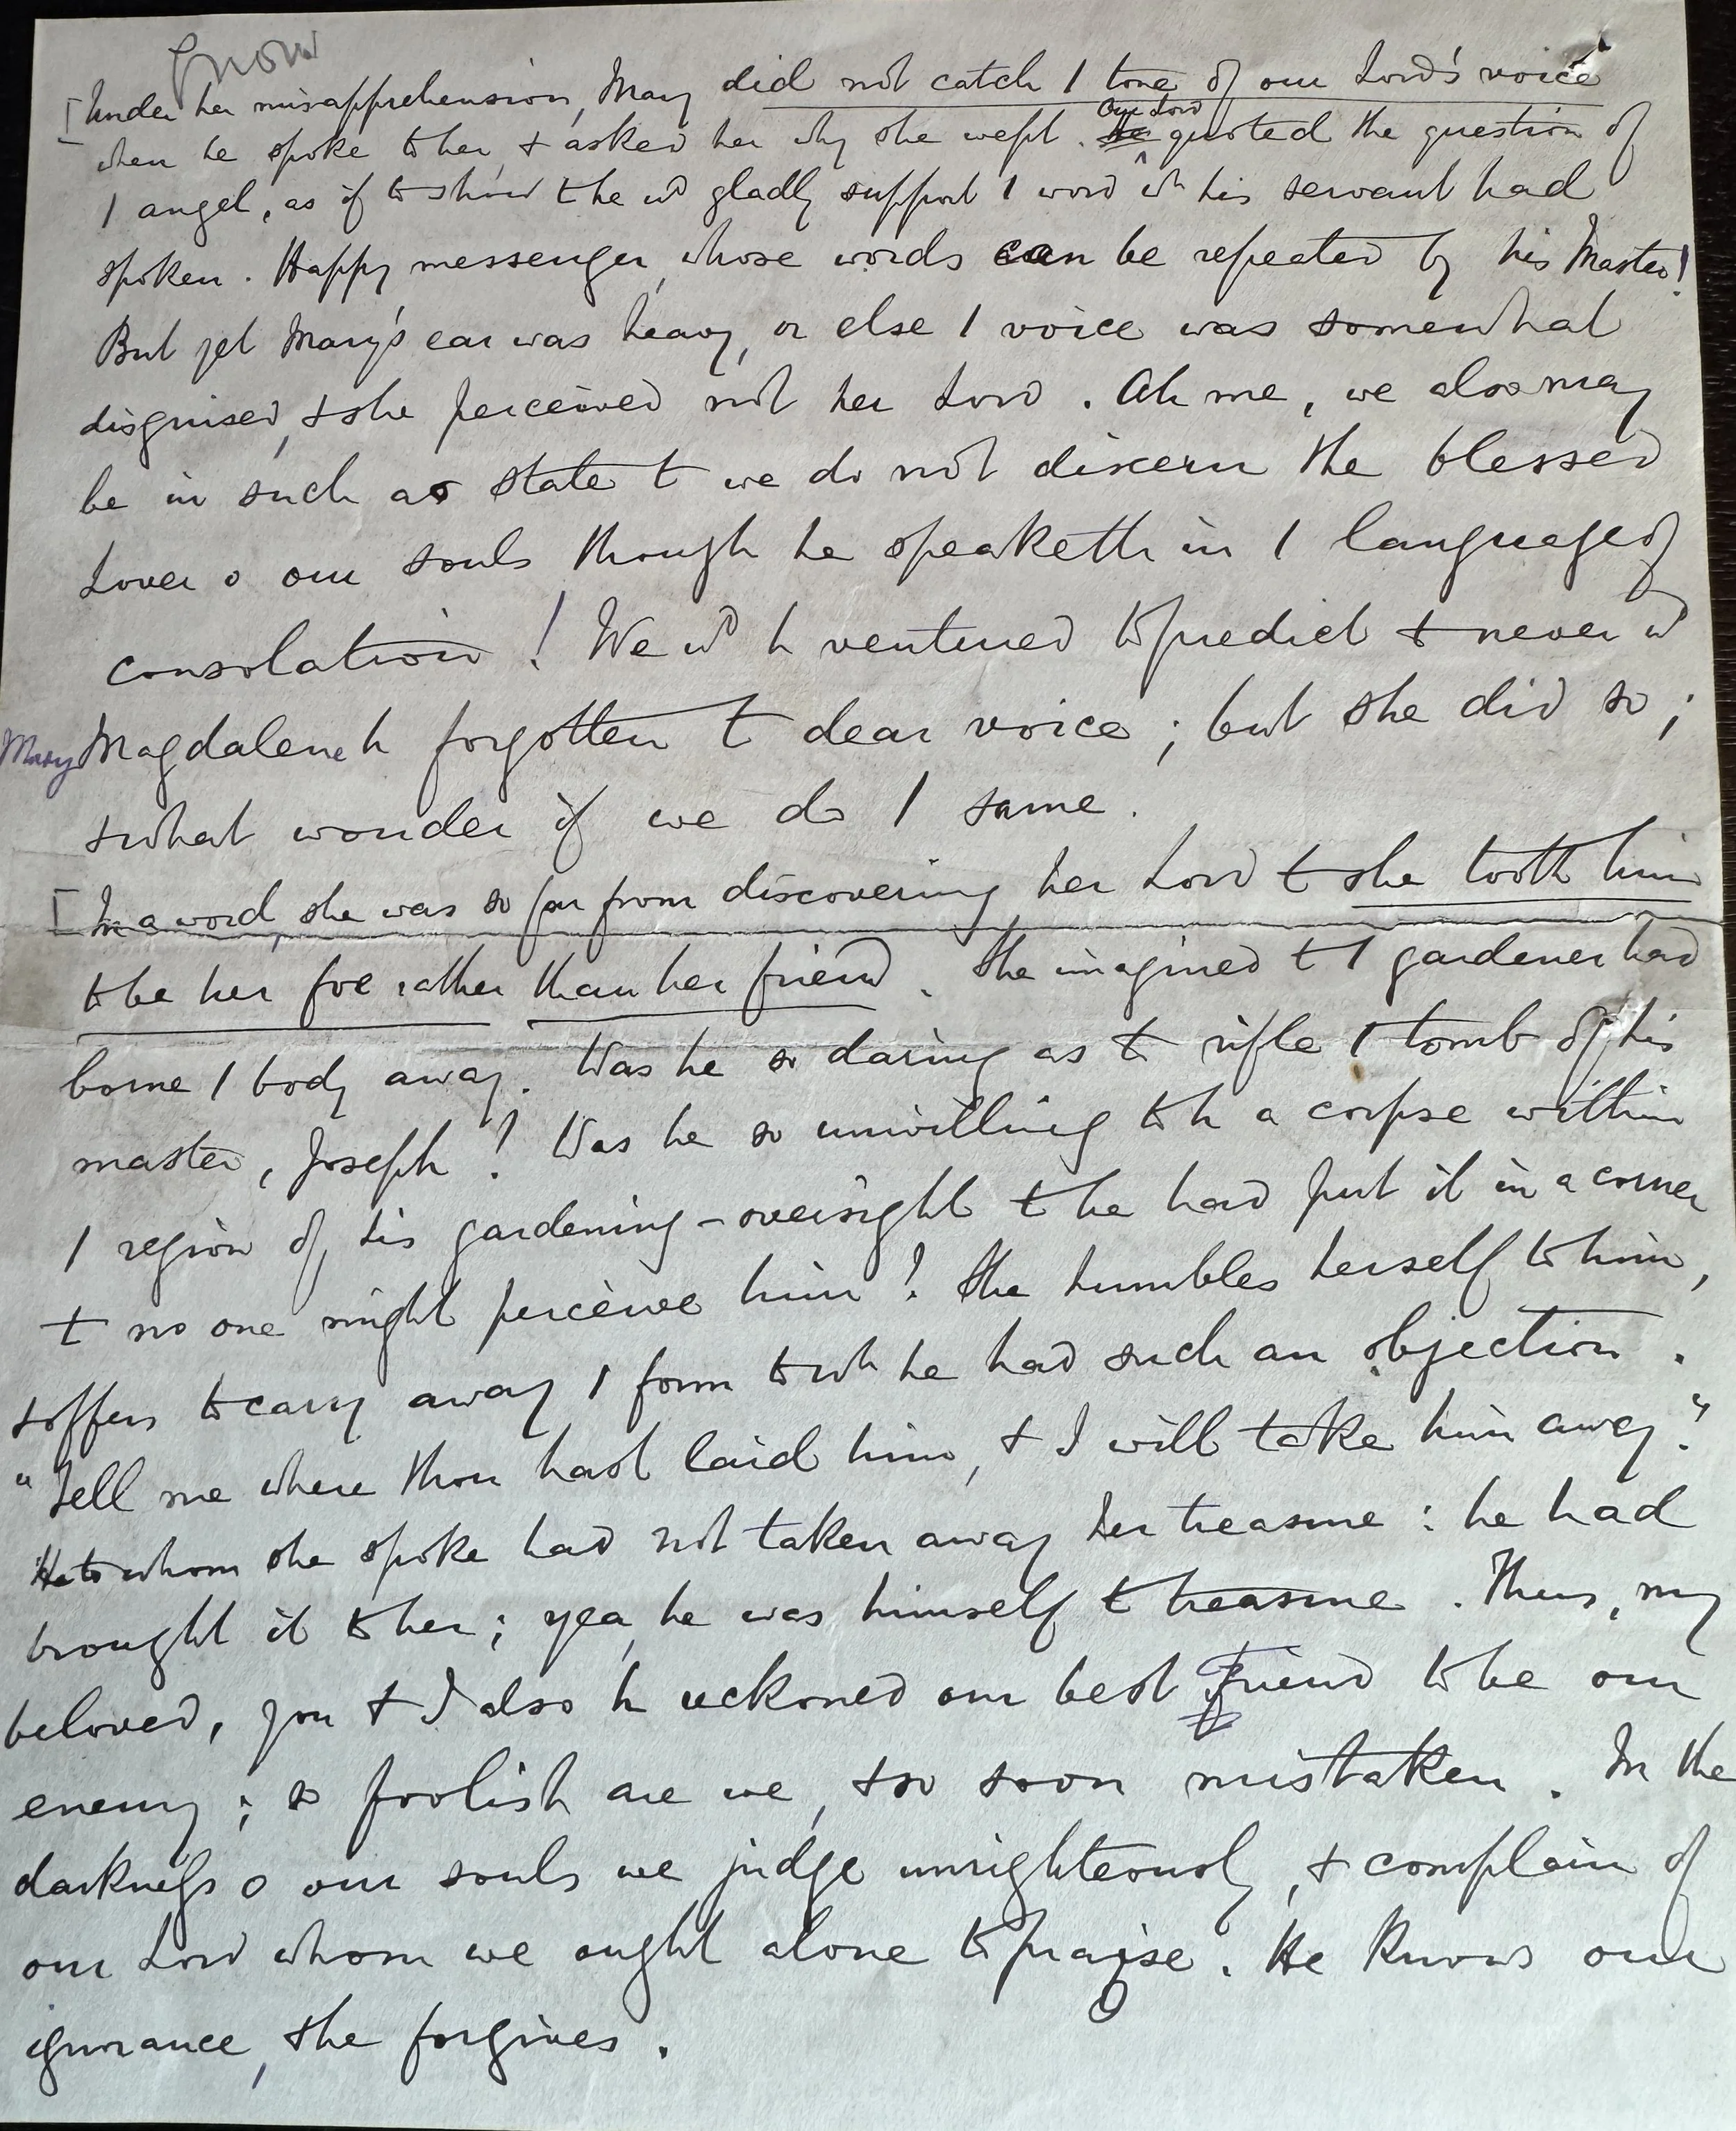 Know
[Under her misapprehension, Mary did not catch / tone of our Lord's voice
Our Lord
when he spoke to her, & asked her why she wept. He quoted the question of
/ angel, as if to show t he wd gladly support / word wh his servant had
spoken. Happy messenger, whose words can be repeated by his Master!
But yet Mary's ear was heavy, or else / voice was somewhat
disguised, & she perceived not her Lord. Ah me, we also may
be in such a state t we do not discern the blessed
Lover o our souls though he speaketh in / language of
consolation! We wd h ventured to predict t never wd
Mary Magdalene h forgotten t dear voice; but she did so;
& what wonder if we do / same.
[In a word, she was so far from discovering her Lord t she took him
to be her foe rather than her friend. She imagined t / gardener had
borne / body away. Was he so daring as to rifle / tomb of his
master, Joseph? Was he so unwilling to h a corpse within
/ region of his gardening-oversight t he had put it in a corner
t no one might perceive him? She humbles herself to him,
& offers to carry away / form to wh he had such an objection.
"Tell me where thou hast laid him, & I will take him away."
He to whom she spoke had not taken away her treasure: he had
brought it to her; yea, he was himself t treasure. Thus, my
beloved, you & I also h reckoned our best Friend to be our
enemy; so foolish are we, & so soon mistaken. In the
darkness o our souls we judge unrighteously, & complain of
our Lord whom we ought alone to praise. He knows our
ignorance, & he forgives.